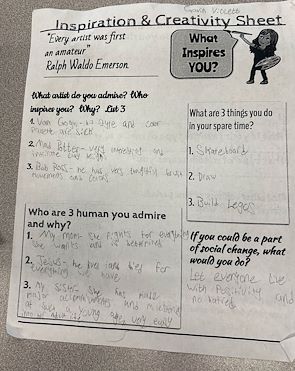 Inspiration & Creativity Sheet
"Every artist was first
an amateur"
Ralph Waldo Emerson
What
Inspires
YOU?
What artist do you admire? Who
inspires you? Why? List 3
1. Van Gogh- his style and color
are sick
2. very interesting and
3. Bob Ross- he has very brush
movements and colors
What are 3 things you do
in your spare time?
1. Skateboard
2. Draw
3. Build Legos
Who are 3 human you admire
and why?
1. My mom- she fights for everything
she wants and is
2. Jesus- he lives and died for
everything I have
3. My sister- she has made
major accomplishments and
at such a young age very easily
If you could be a part
of social change, what
would you do?
Let everyone live
with Positivity and
no hatred